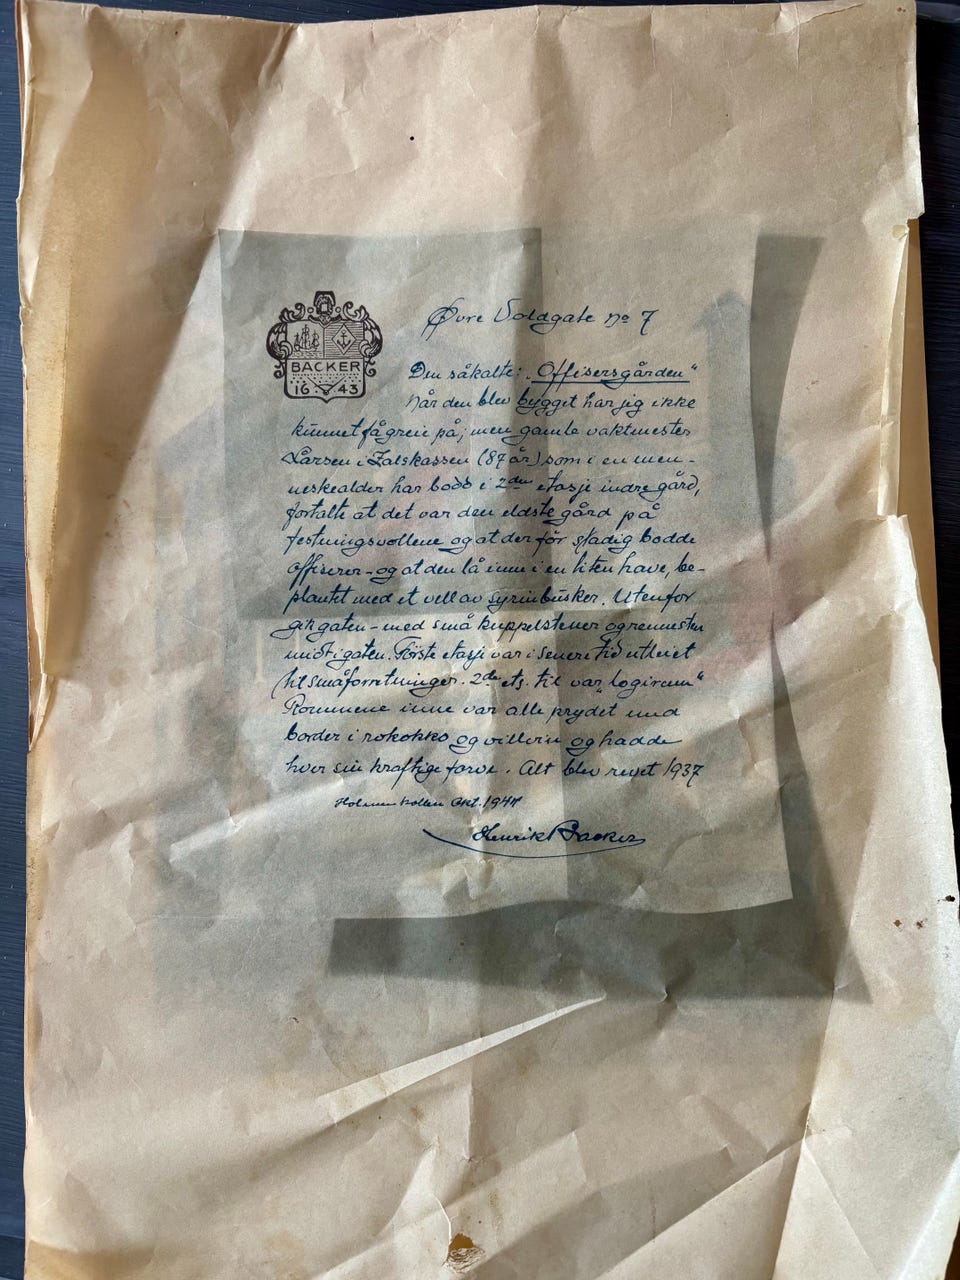 BACKER
16 43
Øvre Voldgate no 7
Den såkalte: „Offisersgården"
Når den blev bygget har jig ikke
kunnet få greie på; men gamle vaktmester
Larsen i Falskassen (87 år) som i en men-
neskealder har bodd i 2den etasje indre gård,
fortalte at det var den eldste gård på
festningsvollene og at der før stadig bodde
offiserer - og at den lå inne i en liten have, be-
plantet med et vell av syrinbusker. Utenfor
gik gaten - med små kuppelstener og rennesten
midt i gaten. Første etasje var i senere tid utleiet
til småforretninger. 2de ets. til var „logirum"
Rommene inne var alle prydet med
border i rokokko og villvin og hadde
hver sin kraftige farve. Alt blev revet 1937
Holmenkollen Okt. 194
Henrik Backer